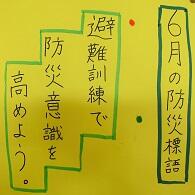 6月の防災標語
避難訓練で
防災意識を
高めよう。